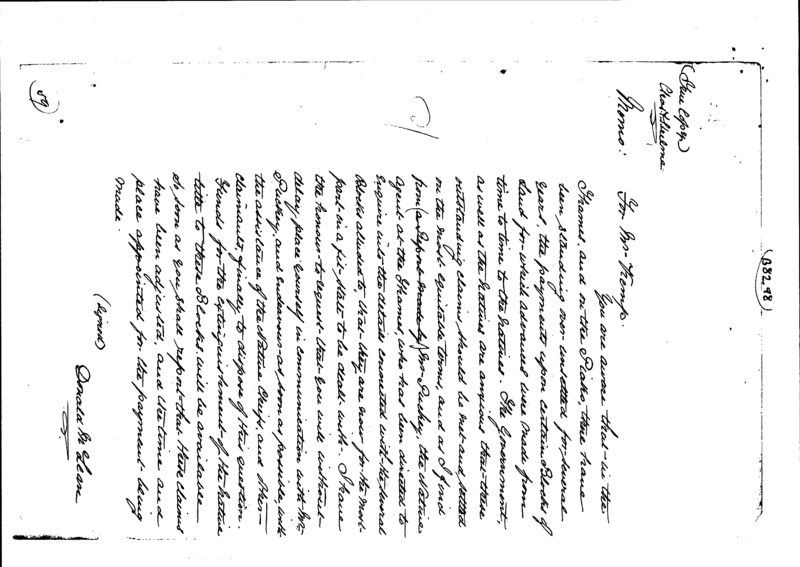 (B32.98)
(True Copy)
Memo: For Mr. Kemp.
You are aware that in the
Thames, and on the Piako, there have
been standing over unsettled for several
years, the payments upon certain Blocks of
Land for which advances were made from
time to time to the Natives. The Government,
as well as the Natives are anxious that these
outstanding claims should be met and settled
on the most equitable terms, and as I find
from (a Report made by) Mr. Puckey, the Native
Agent at the Thames, who has been directed to
enquire into the details connected with the several
Blocks alluded to that they are now for the most
part in a fit state to be dealt with. I have
the honour to request that you will without
delay, place yourself in communication with Mr.
Puckey, and endeavour as soon as possible, with
the assistance of the Native Chiefs, and other
claimants, finally to dispose of this question.
Funds for the extinguishment of the Native
title to these Blocks, will be available
so soon as you shall report that these claims
have been adjusted, and the time and
place appointed for the payment being
made.
(Signed)
Donald McLean
(59)